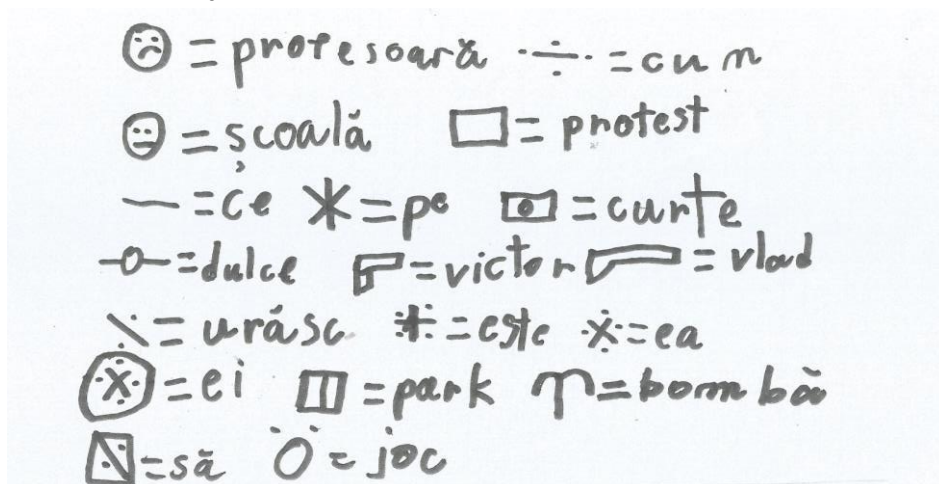 = profesoară = cum
= școală = protest
= ce = pe = curte
= dulce = victor = vlad
= urăsc = este = ea
= ei = park = bombă
= să = joc